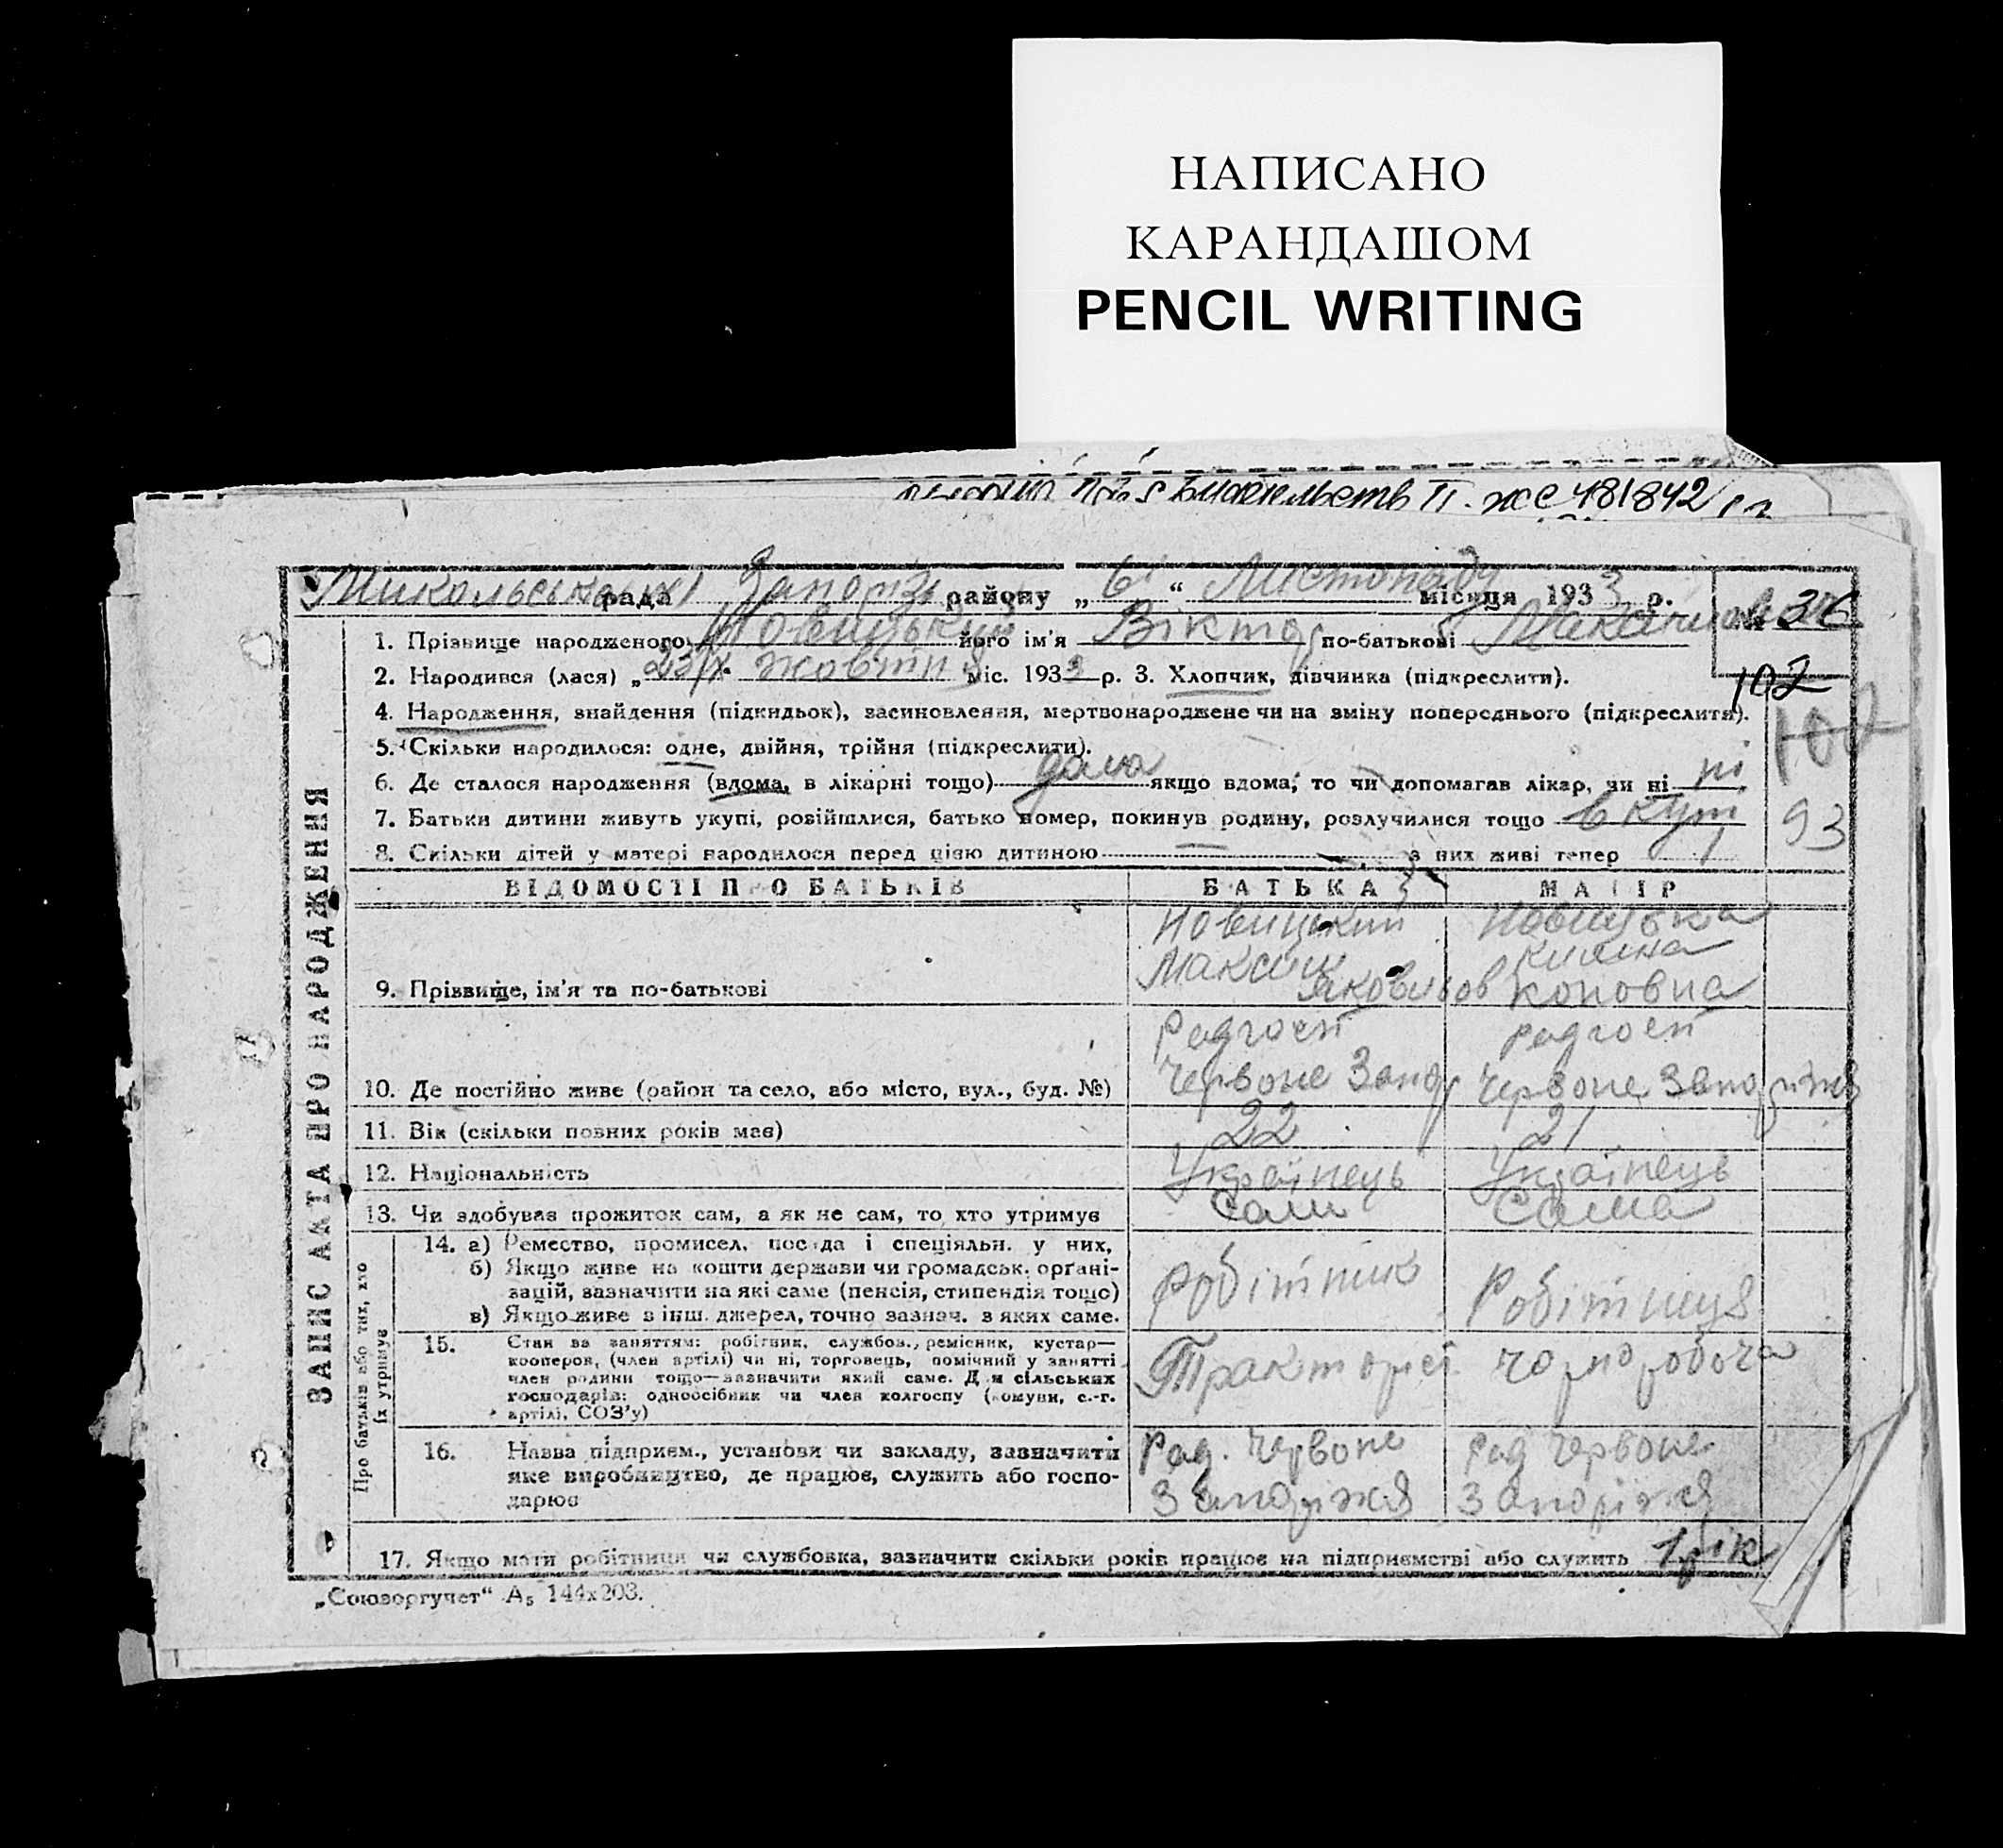 НАПИСАНО
КАРАНДАШОМ
PENCIL WRITING
ЖС 481842
Микольська рада Запорізь району „6“ Листопаду місяця 1933 р.
№ 36
1. Прізвище народженого Новицький його ім'я Віктор по-батькові Максимович
2. Народився (лася) „23/X“ жовтня міс. 1933 р. 3. Хлопчик, дівчинка (підкреслити).
102
4. Народження, знайдення (підкидьок), засиновлення, мертвонароджене чи на зміну попереднього (підкреслити).
102
5. Скільки народилося: одне, двійня, трійня (підкреслити).
6. Де сталося народження (вдома, в лікарні тощо) дома якщо вдома, то чи допомагав лікар, чи ні ні
7. Батьки дитини живуть укупі, розійшлися, батько помер, покинув родину, розлучилися тощо в куп
93
8. Скільки дітей у матері народилося перед цією дитиною — з них живі тепер
ЗАПИС АКТА ПРО НАРОДЖЕННЯ
ВІДОМОСТІ ПРО БАТЬКІВ БАТЬКА МАТІР
Новицький Новицька
Максим Килина
9. Прізвище, ім'я та по-батькові Яковльов
Радгосп радгосп
10. Де постійно живе (район та село, або місто, вул., буд. №) Червоне Запор Червоне Запоріжжя
11. Вік (скільки повних років має) 22 21
12. Національність Українець Українець
13. Чи здобував прожиток сам, а як не сам, то хто утримує Сам Сама
Про батьків або тих, хто їх утримує
14. а) Ремество, промисел, посада і спеціяльн. у них,
б) Якщо живе на кошти держави чи громадськ. орґані-
зацій, зазначити на які саме (пенсія, стипендія тощо)
в) Якщо живе з інш. джерел, точно зазнач. з яких саме.
Робітник Робітниця
15. Стан за заняттям: робітник, службов., ремісник, кустар—
кооперов, (член артілі) чи ні, торговець, помічний у занятті
член родини тощо—зазначити який саме. Для сільських
господарів: одноосібник чи член колгоспу (комуни, с.-г.
артілі, СОЗ'у)
Тракторист чорноробоча
16. Назва підприєм., установи чи закладу, зазначити
яке виробництво, де працює, служить або госпо-
дарює
Рад. Червоне Рад Червоне
Запоріжжя Запоріжжя
17. Якщо мати робітниця чи службовка, зазначити скільки років працює на підприємстві або служить 1 рік
„Союзоргучет“ А5 144х203.